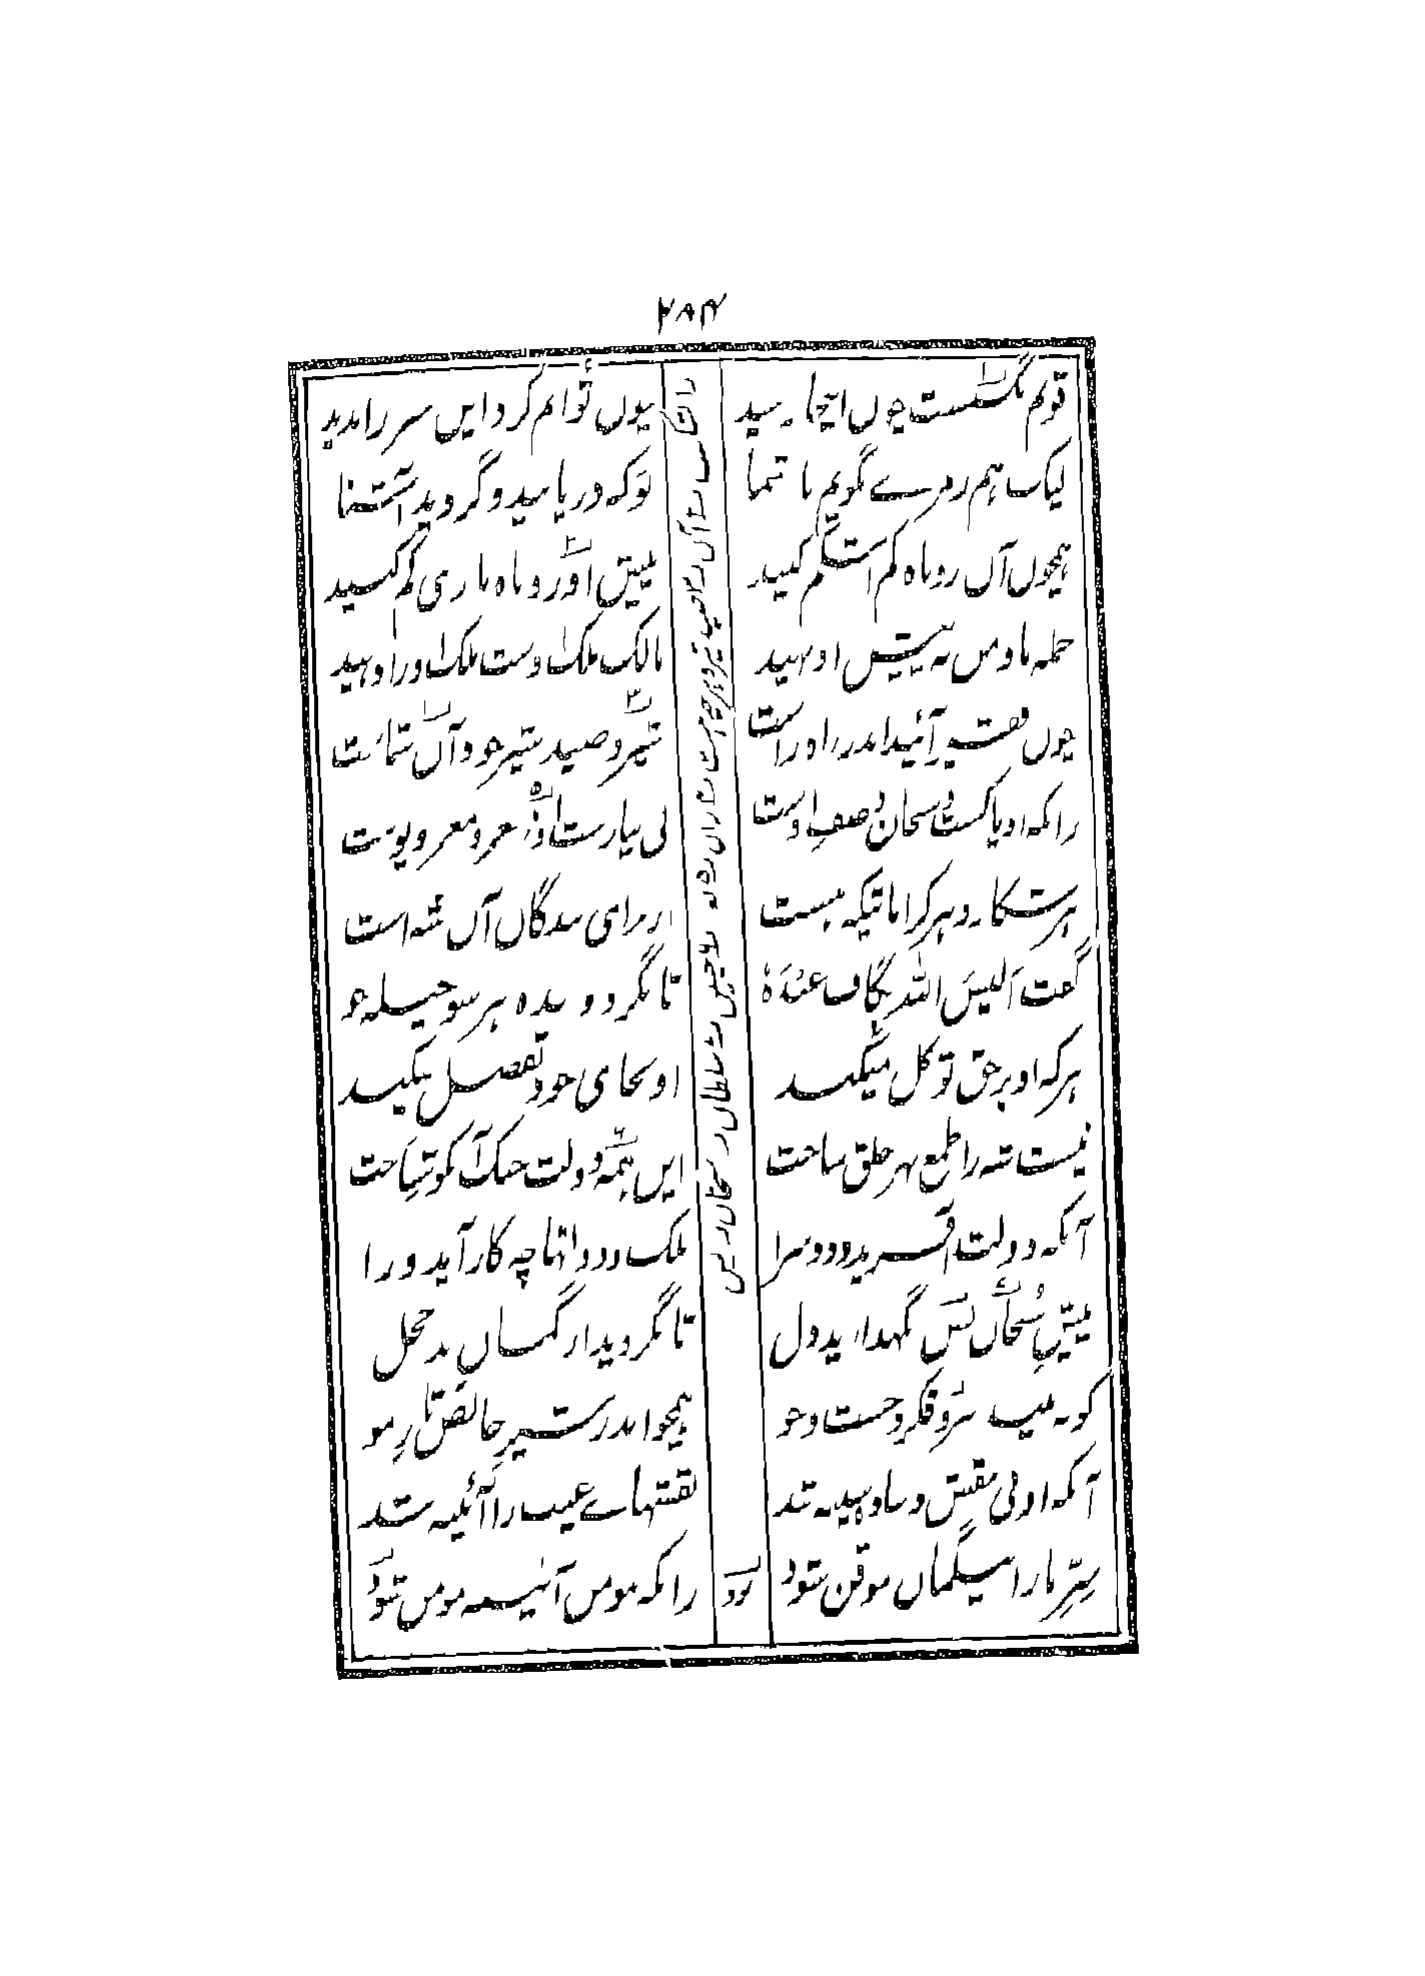 ۲۸۴
قوتم بگسست چون اینجا رسید چون توانم کرد این سر را بدید
لیک هم رمزے گویم با شما تو که دریابید و گردید آشنا
همچون آن روباه کم اشکم کنید پیش او روباه بازی کم کنید
جمله ما و من به پیش او نهید مالک ملک اوست ملک او را دهید
چون فقیر آئید اندر راه راست شیر و صید شیر خود آن شماست
زانکه او پاکست و سبحان وصف اوست بی نیازست او ز نغز و مغز و پوست
هر شکار و هر کراماتیکه هست از برای بندگان آن شه است
گفت اَلَیسَ اللّٰه بِکافٍ عَبْدَهٗ تا نگردد بنده هر سو حیله جو
هر که او بر حق توکل میکند او بجای خود تفضل میکند
نیست شه را طمع بهر خلق ساخت این همه دولت خنک آنکو شناخت
آنکه دولت آفرید و دو سرا ملک و دولتها چه کار آید ورا
پیشِ سُبحان بَس نگهدارید دل تا نگردید از گمانِ بد خجل
کو به بیند سِرّ و فکر و جست و جو همچو اندر شیرِ خالص تارِ مو
آنکه او بی نقش و ساده سینه شد نقشهاے غیب را آئینه شد
سِرِّ ما را بیگمان موقن شود زانکه مومن آئینه مومن شود